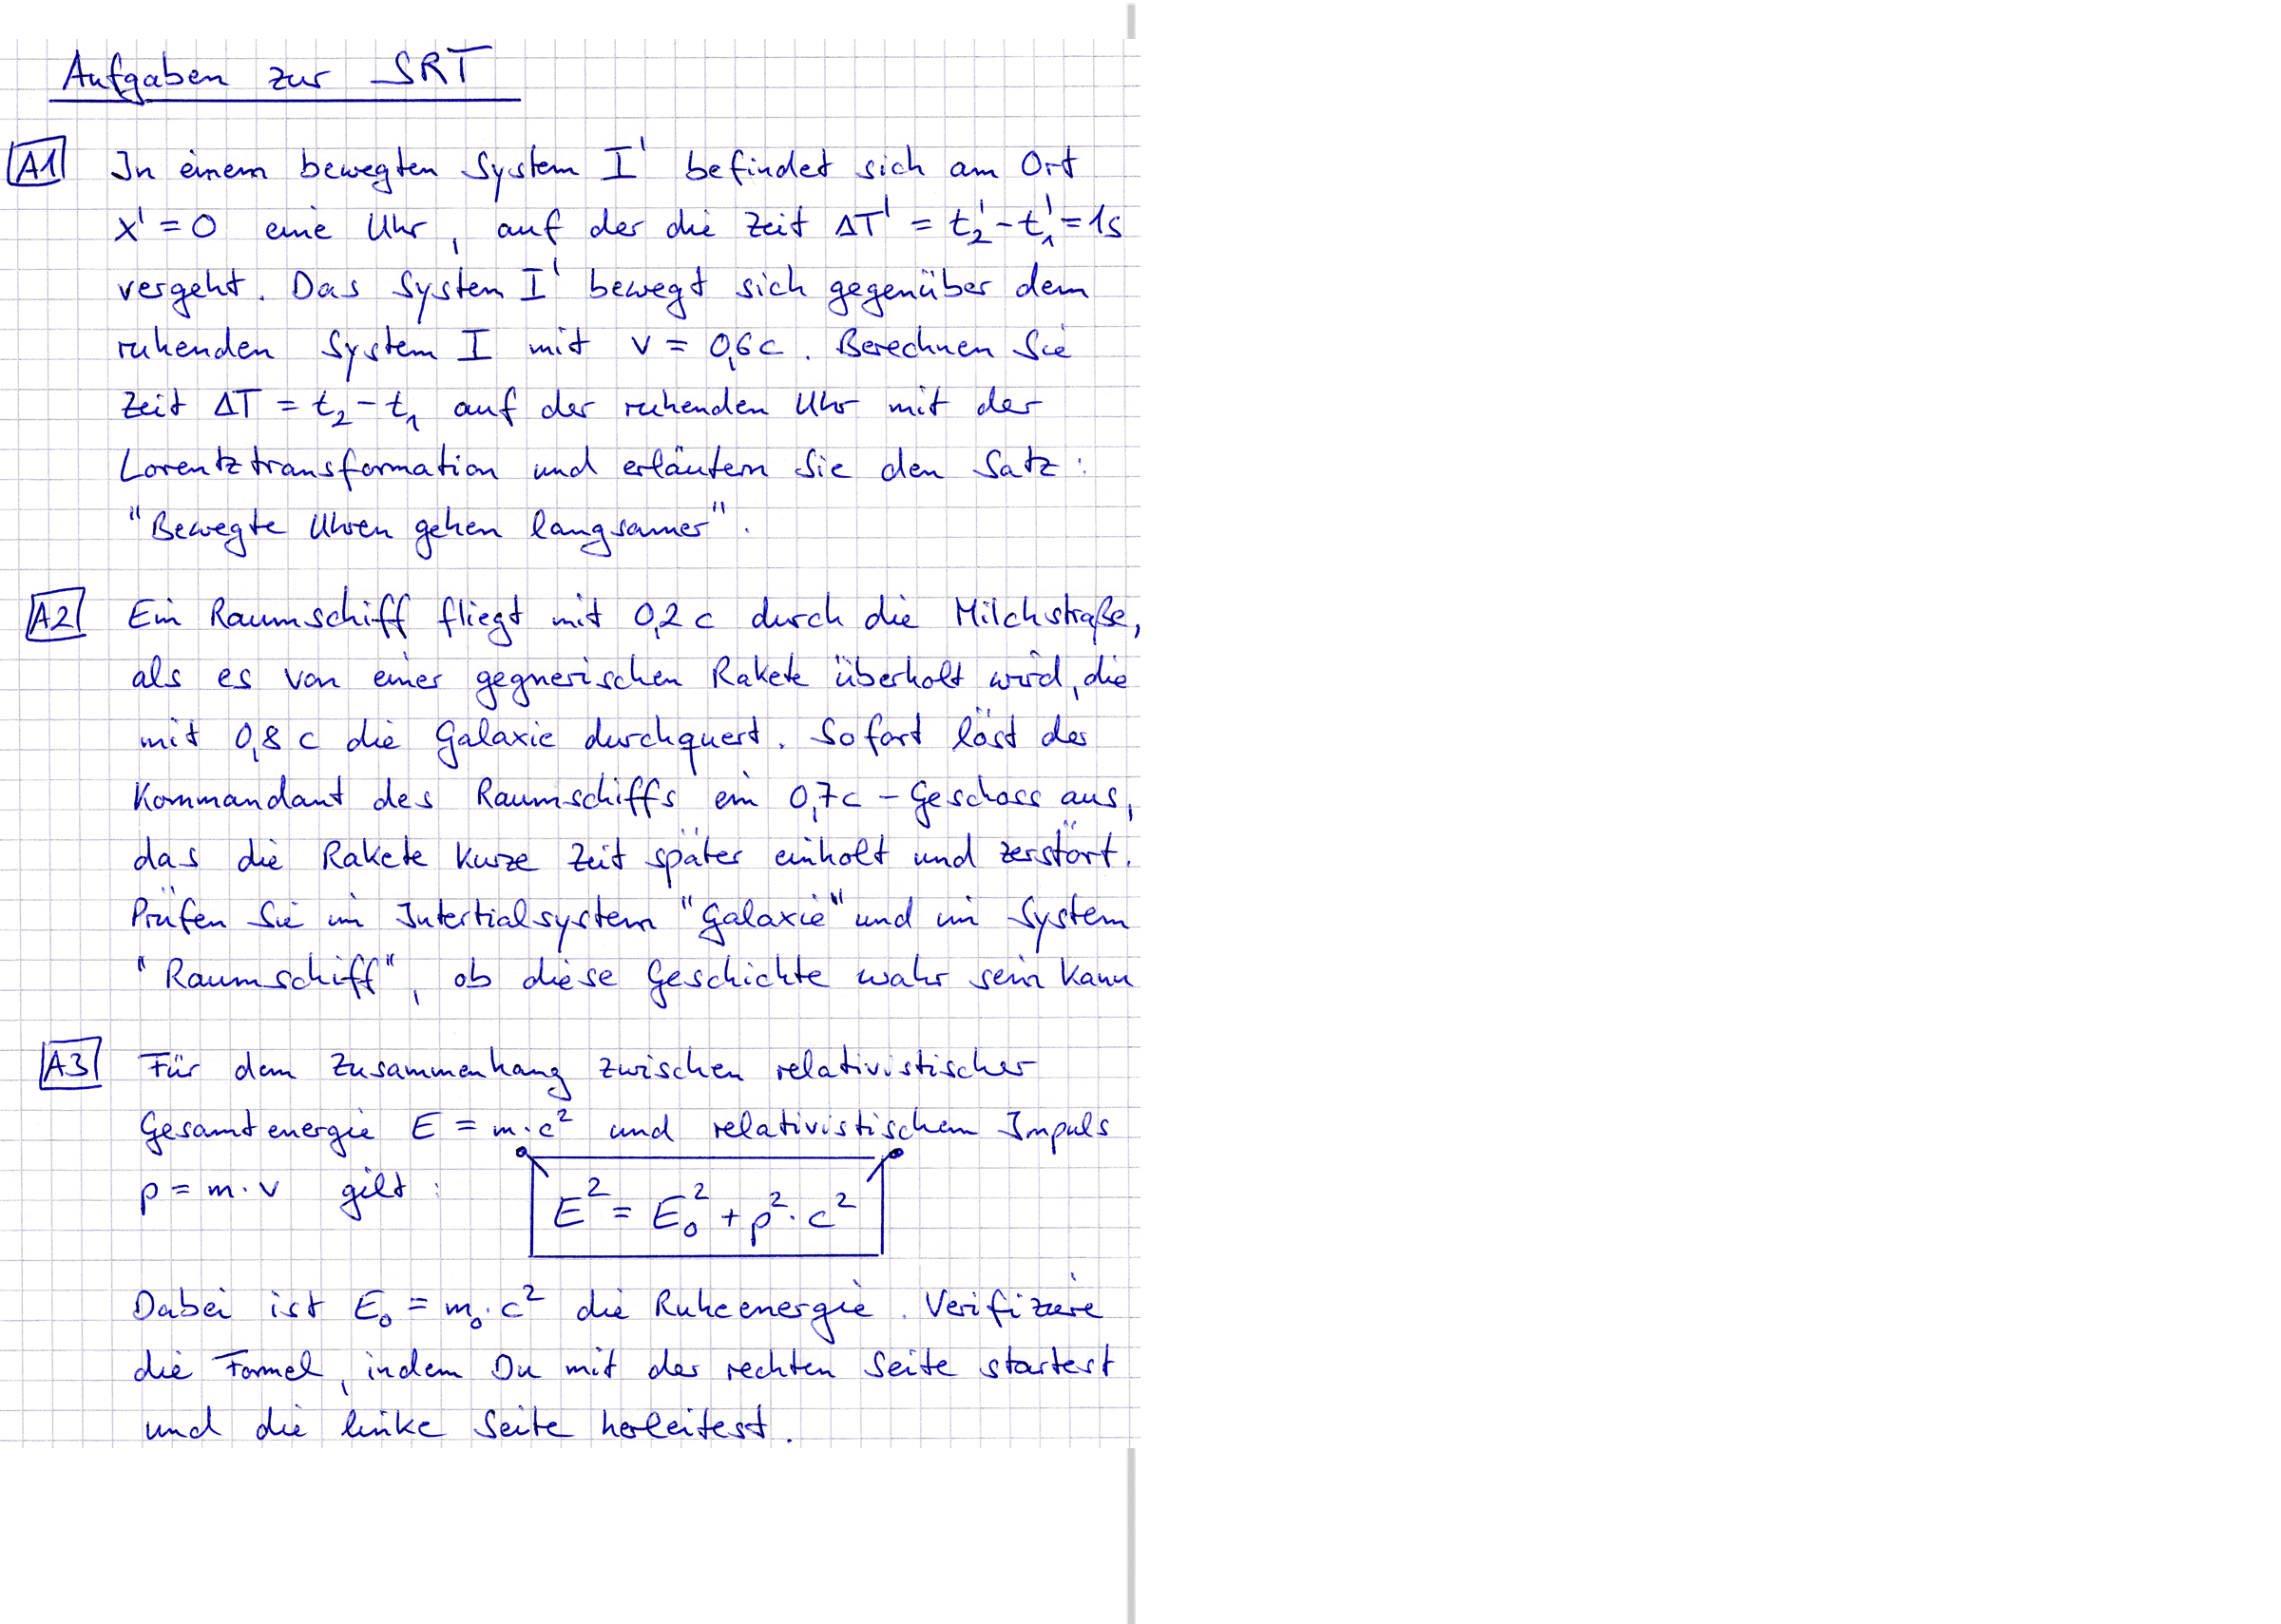 Aufgaben zur SRT
A1 In einem bewegten System I' befindet sich am Ort
x' = 0 eine Uhr, auf der die Zeit ΔT' = t₂' - t₁' = 1s
vergeht. Das System I' bewegt sich gegenüber dem
ruhenden System I mit v = 0,6c. Berechnen Sie
Zeit ΔT = t₂ - t₁ auf der ruhenden Uhr mit der
Lorentztransformation und erläutern Sie den Satz:
"Bewegte Uhren gehen langsamer".
A2 Ein Raumschiff fliegt mit 0,2 c durch die Milchstraße,
als es von einer gegnerischen Rakete überholt wird, die
mit 0,8 c die Galaxie durchquert. Sofort löst der
Kommandant des Raumschiffs ein 0,7c - Geschoss aus,
das die Rakete kurze Zeit später einholt und zerstört.
Prüfen Sie im Intertialsystem "Galaxie" und im System
"Raumschiff", ob diese Geschichte wahr sein kann
A3 Für dem Zusammenhang zwischen relativistischer
Gesamtenergie E = m·c² und relativistischem Impuls
p = m·v gilt:
E² = E₀² + p²·c²
Dabei ist E₀ = m₀·c² die Ruheenergie. Verifiziere
die Formel, indem Du mit der rechten Seite startest
und die linke Seite herleitest.